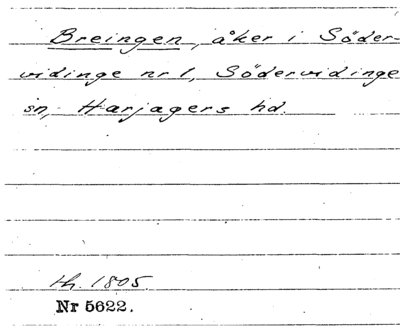 Breingen, åker i Söder-
vidinge nr 1, Södervidinge
sn, Harjagers hd.
th. 1805.
Nr 5622.